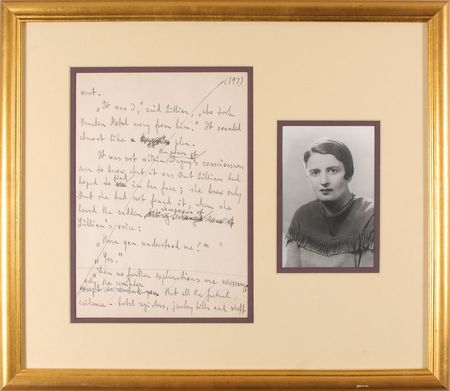 (197)
want.
"It was I," said Lillian, "who took
Rearden Metal away from him." It sounded
almost like a plea.
the power of
It was not within Dagny's consciousness
ever to know what it was that Lillian had
hoped to find in her face; she knew only
that she had not found it, when she
heard the sudden sharpness of
Lillian's voice:
"Have you understood me?"
"Yes."
"Then no further explanations are necessary,
only the reminder
that all the factual
evidence – hotel registers, jewelry bills and stuff